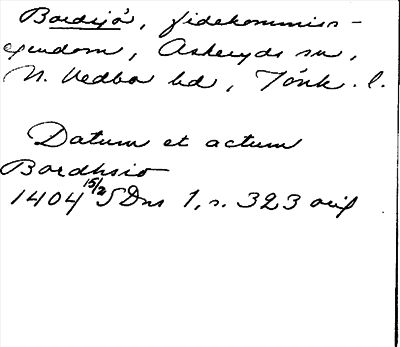 Bordsjö, fideikommiss-
egendom, Askeryds sn,
N. Vedbo hd, Jönk. l.
Datum et actum
Bordhsio
1404 15/2 SDns 1, s. 323 orig